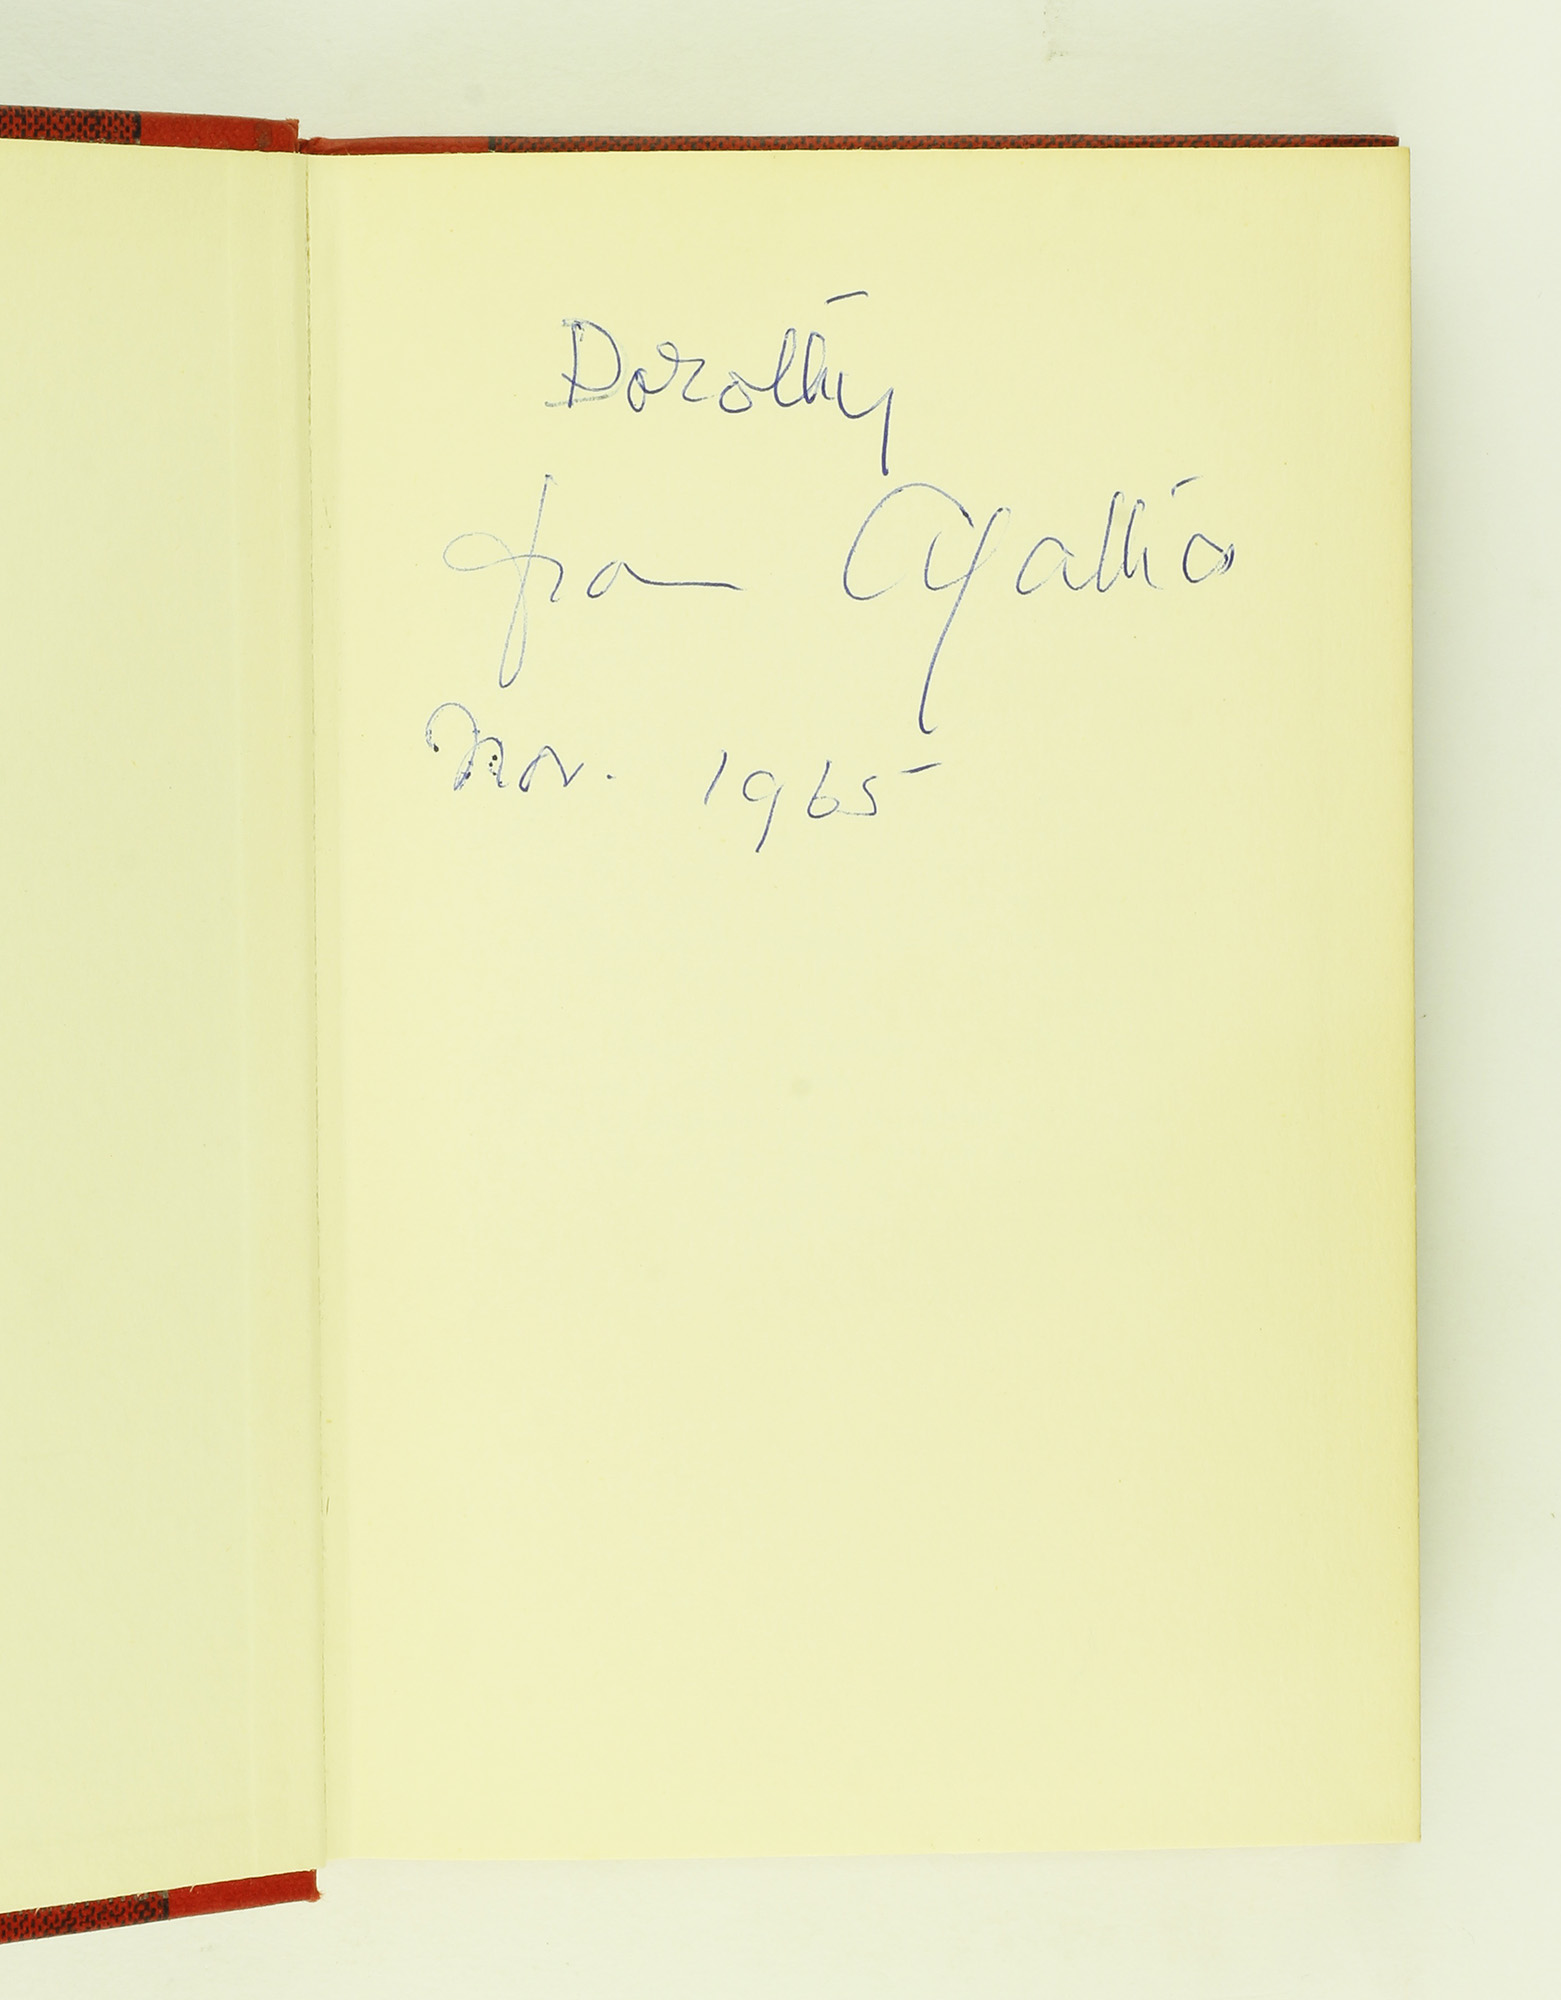 Dorothy
from Agatha
Nov. 1965